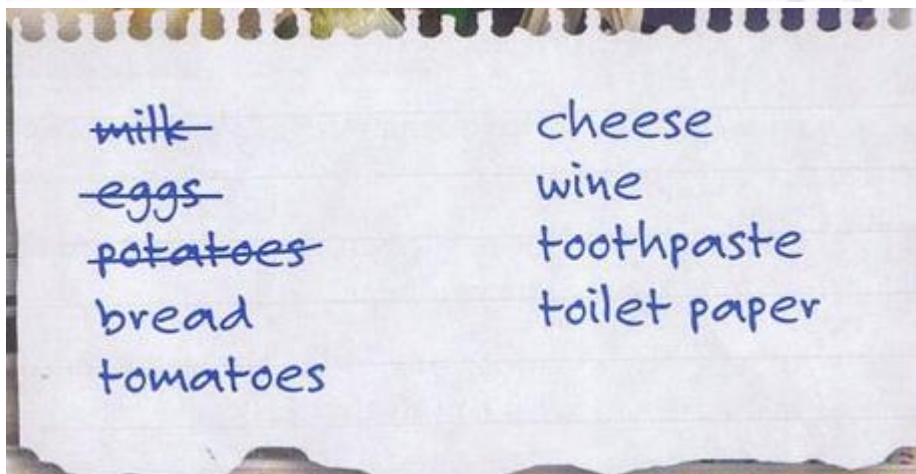 milk
eggs
potatoes
bread
tomatoes
cheese
wine
toothpaste
toilet paper